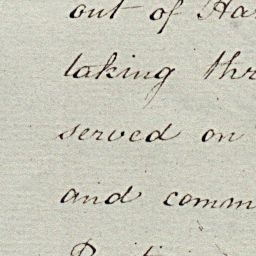 out of Ha
taking thr
served on
and comm